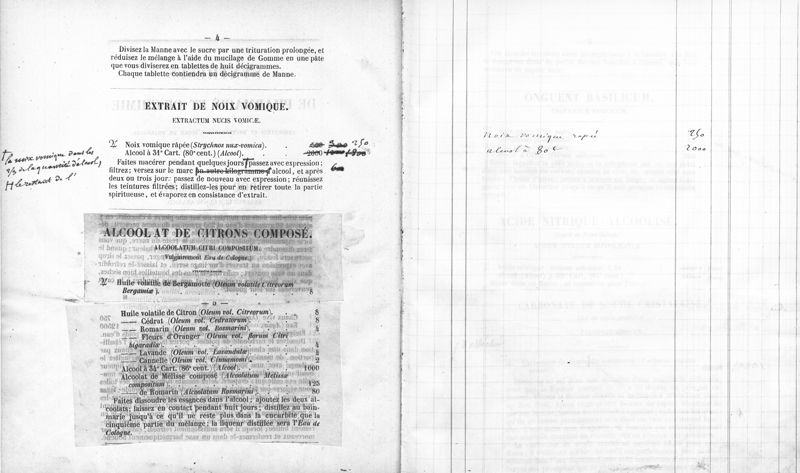 — 4 —
Divisez la Manne avec le sucre par une trituration prolongée, et
réduisez le mélange à l'aide du mucilage de Gomme en une pâte
que vous diviserez en tablettes de huit décigrammes.
Chaque tablette contiendra un décigramme de Manne.
EXTRAIT DE NOIX VOMIQUE.
EXTRACTUM NUCIS VOMICÆ.
♃ Noix vomique râpée (Strychnos nux-vomica). 250
Alcool à 34° Cart. (80° cent.) (Alcool). 2000
Faites macérer pendant quelques jours† passez avec expression;
filtrez; versez sur le marc un autre kilogramme d'alcool, et après
deux ou trois jours passez de nouveau avec expression; réunissez
les teintures filtrées; distillez-les pour en retirer toute la partie
spiritueuse, et évaporez en consistance d'extrait.
† la noix vomique dans les
2/3 de la quantité d'alcool,
le restant de l'
ALCOOLAT DE CITRONS COMPOSÉ.
ALCOOLATUM CITRI COMPOSITUM.
(Vulgairement Eau de Cologne.)
♃ Huile volatile de Bergamotte (Oleum volatile Citreorum
Bergamiæ). 8
Huile volatile de Citron (Oleum vol. Citreorum). 8
—— Cédrat (Oleum vol. Cedratorum). 8
—— Romarin (Oleum vol. Rosmarini). 4
—— Fleurs d'Oranger (Oleum vol. florum Citri
bigaradiæ). 4
—— Lavande (Oleum vol. Lavandulæ). 4
—— Cannelle (Oleum vol. Cinnamomi). 2
Alcool à 34° Cart. (86° cent.) (Alcool). 1000
Alcoolat de Mélisse composé (Alcoolatum Melissæ
compositum). 125
—— de Romarin (Alcoolatum Rosmarini). 80
Faites dissoudre les essences dans l'alcool; ajoutez les deux al-
coolats; laissez en contact pendant huit jours; distillez au bain-
marie jusqu'à ce qu'il ne reste plus dans la cucurbite que la
cinquième partie du mélange; la liqueur distillée sera l'Eau de
Cologne.
Noix vomique rapé 250
alcool à 80c 2000